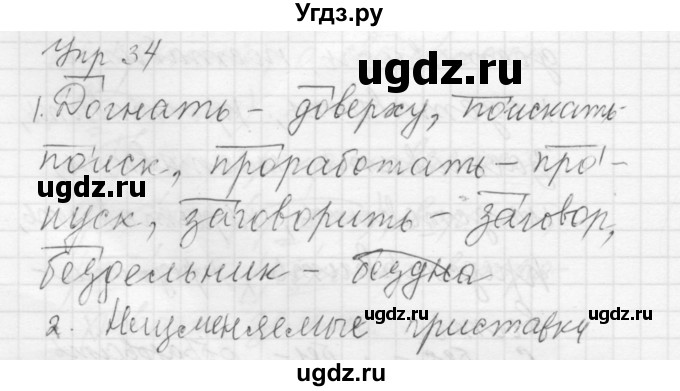 Угдз.ру
Упр 34
ugdz.ru
1. Догнать – доверху, поискать-
поиск, проработать – про-
ugdz.ru
ugdz.ru
пуск, заговорить – заговор,
бездельник – бездна
ugdz.ru
ugdz.ru
2. Неизменяемые приставки
ugdz.ru